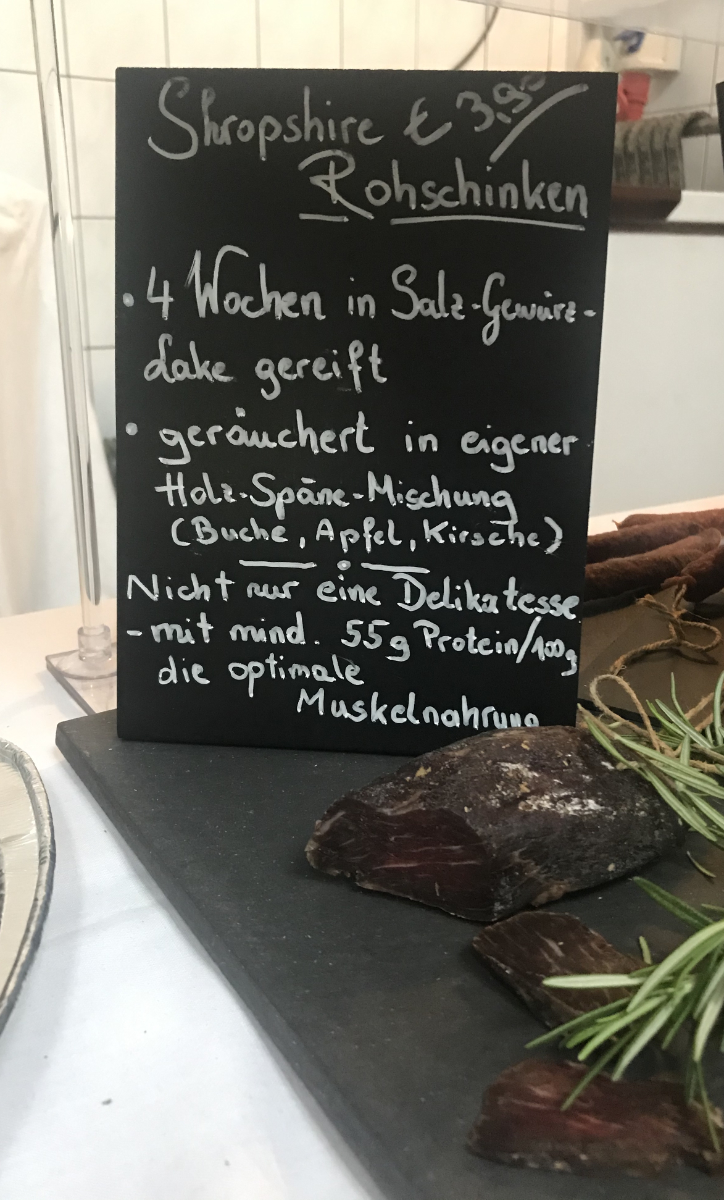 Shropshire € 3,90
Rohschinken
• 4 Wochen in Salz-Gewürz-
lake gereift
• geräuchert in eigener
Holz-Späne-Mischung
(Buche, Apfel, Kirsche)
Nicht nur eine Delikatesse
- mit mind. 55g Protein/100g
die optimale
Muskelnahrung